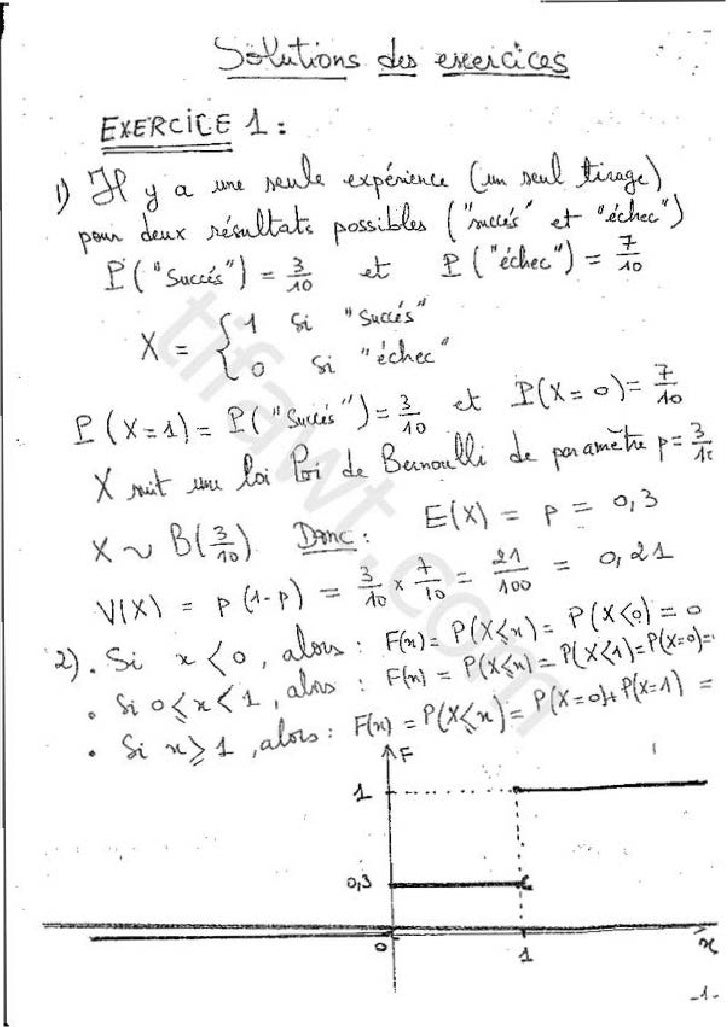 Solutions des exercices
EXERCICE 1 :
1) Il y a une seule expérience (un seul tirage)
pour deux résultats possibles ("succés" et "échec")
P("Succés") = 3/10 et P("échec") = 7/10
X = { 1 si "Succés"
0 si "échec"
P(X=1) = P("Succés") = 3/10 et P(X=0) = 7/10
X suit une loi loi de Bernoulli de paramètre p = 3/10
X ~ B(3/10) Donc : E(X) = p = 0,3
V(X) = p(1-p) = 3/10 × 7/10 = 21/100 = 0,21
2) . Si x < 0, alors : F(x) = P(X≤x) = P(X<0) = 0
. Si 0≤x<1, alors : F(x) = P(X≤x) = P(X<1) = P(X=0) =
. Si x≥1, alors : F(x) = P(X≤x) = P(X=0)+P(X=1) =
F
1
0,3
0 1 x
-1-
tifawt.com